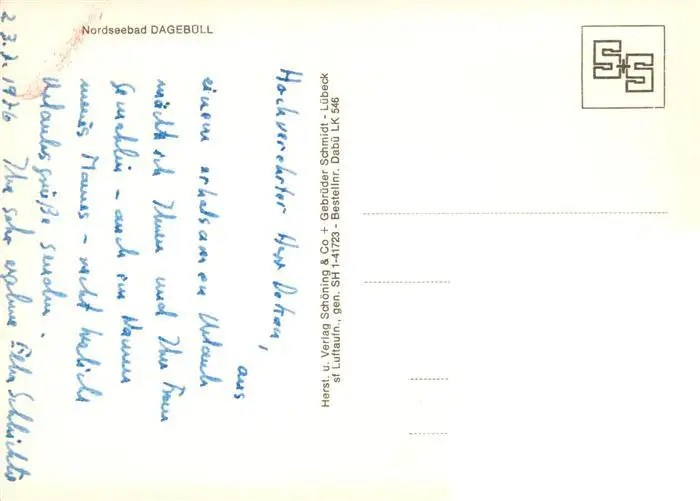 Nordseebad DAGEBÜLL
Hochverehrter Herr Dekan,
aus
einem erholsamen Urlaub
möchte ich Ihnen und Ihrer Frau
Gemahlin - auch im Namen
meines Mannes - recht herzliche
Urlaubsgrüße senden.
23.2.1976 Ihre sehr ergebene
Herst. u. Verlag Schöning & Co + Gebrüder Schmidt - Lübeck
sf Luftaufn., gen. SH 1-41723 - Bestellnr. Dabü LK 546
S+S